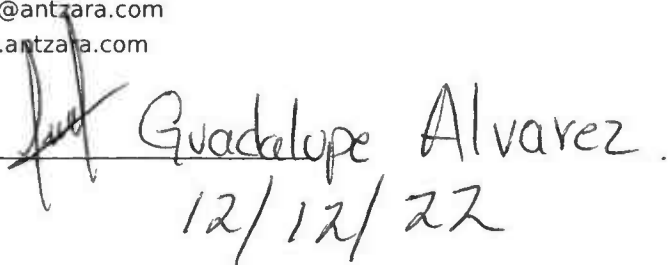 @antzara.com
.antzara.com
Guadalupe Alvarez.
12/12/22